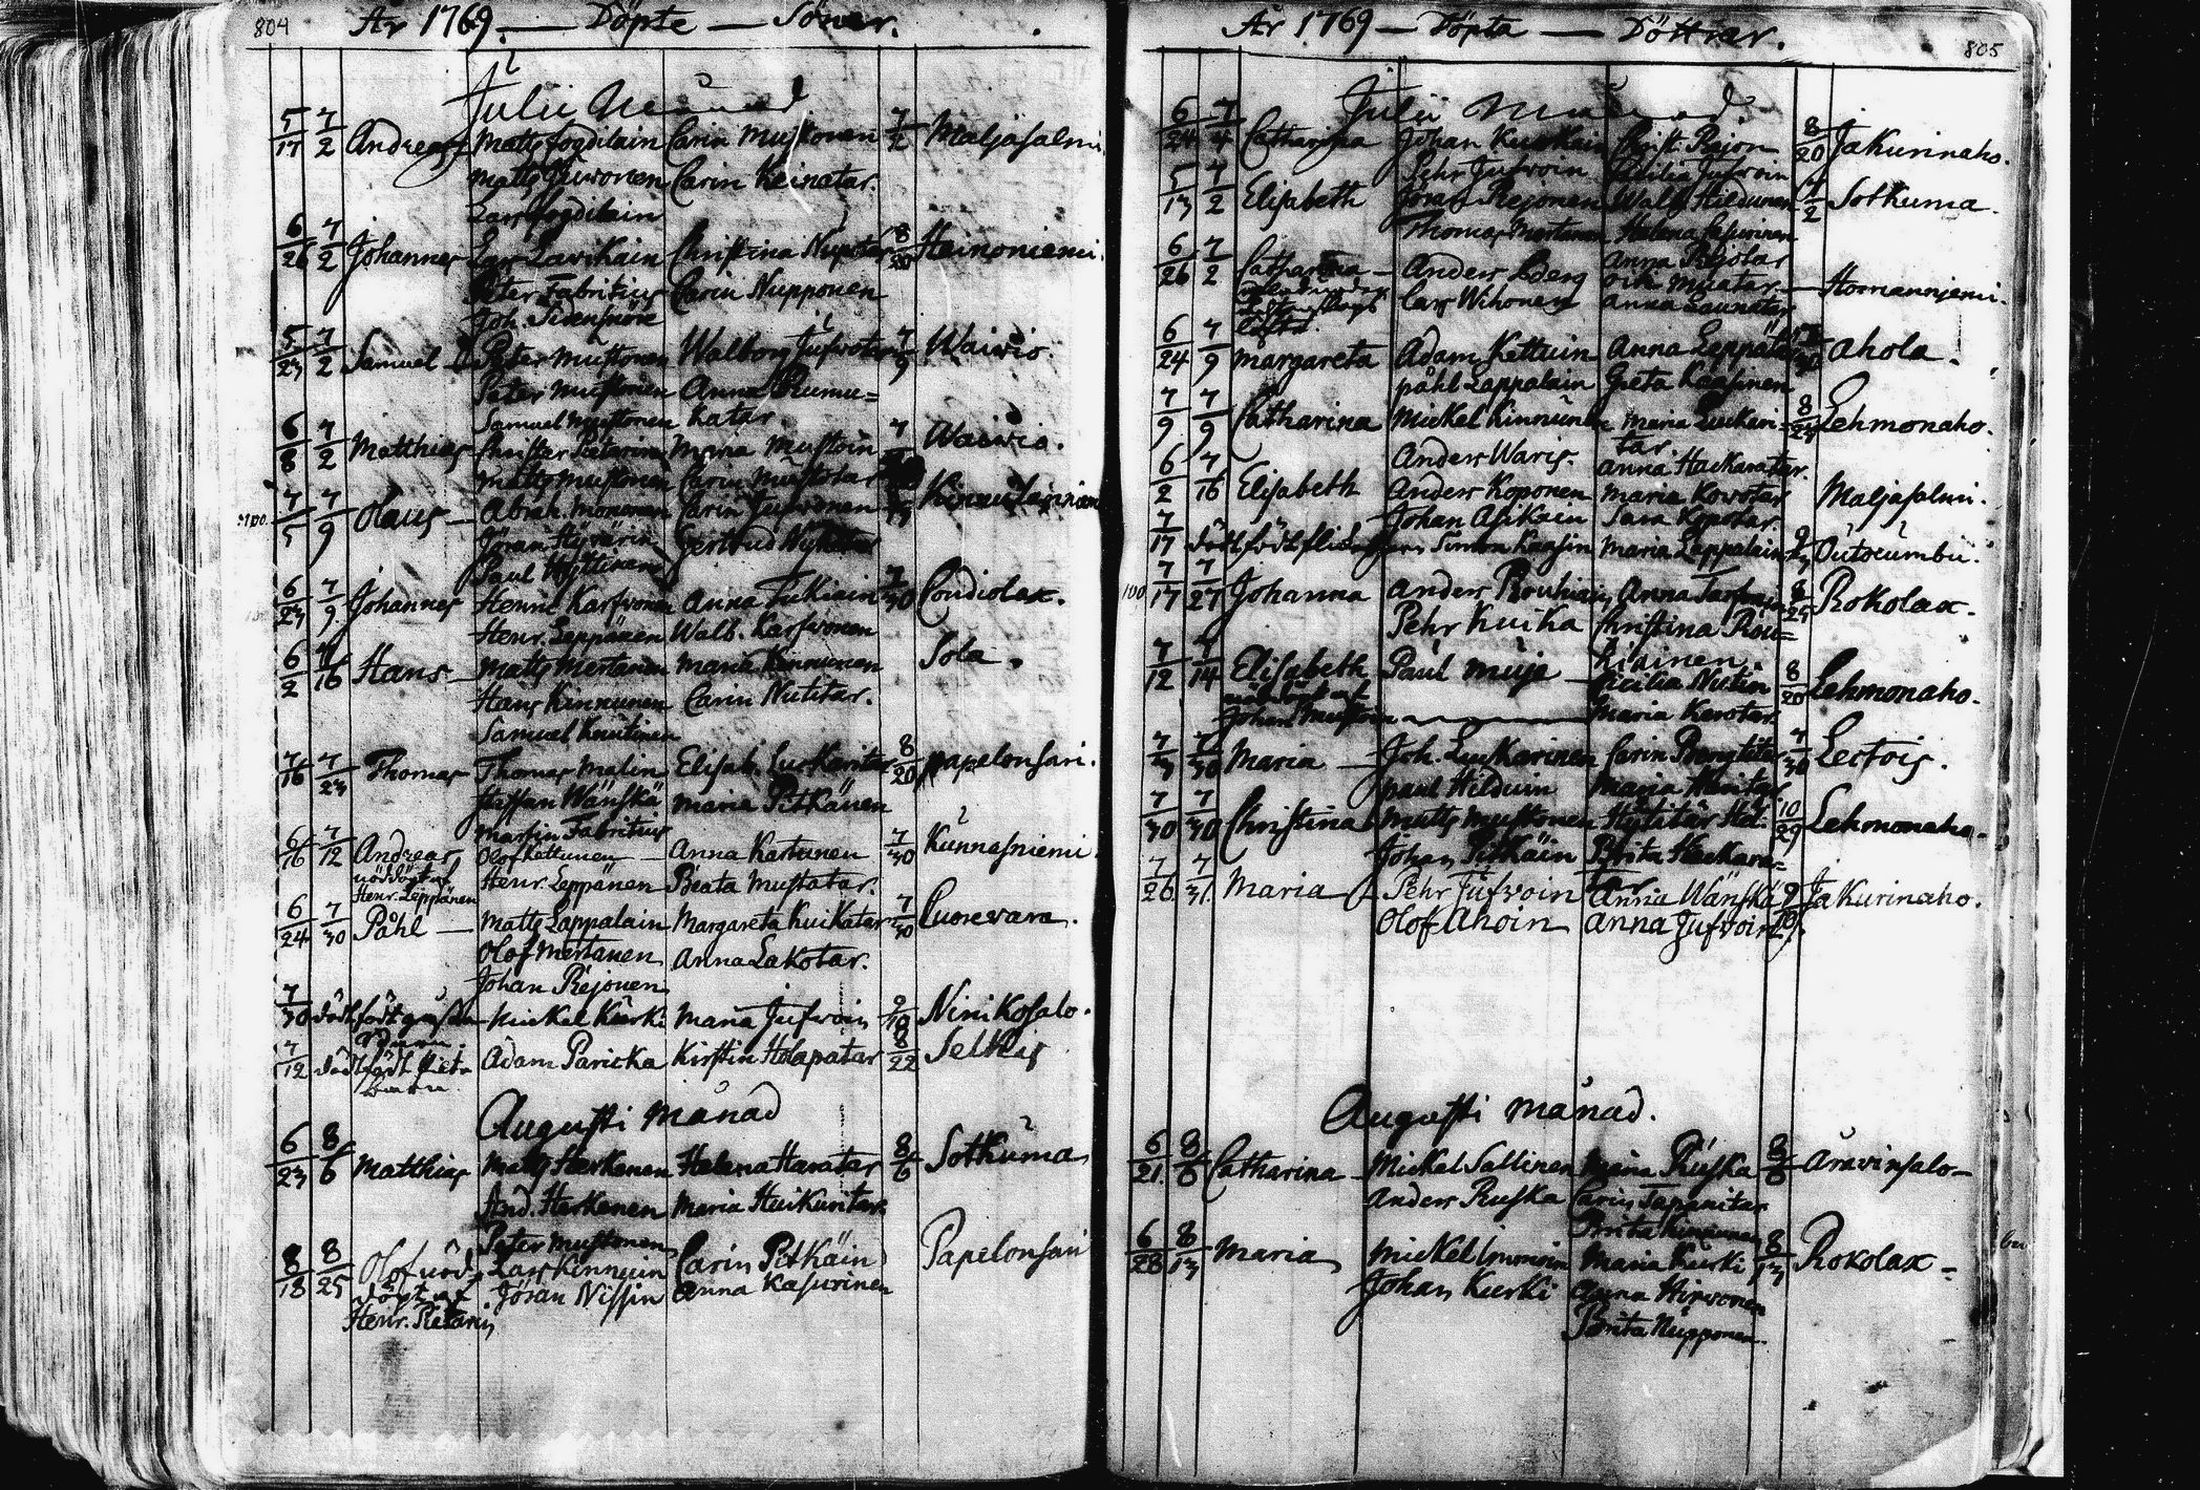 804
År 1769. — Döpte — Söner.
Julii Månad
5/17 7/2 Andreas Matts Fogdilain Carin Mustonen 7/2 Maljasalmi
Matts Juvonen Carin Keinatar.
Lars Fogdilain
6/26 7/2 Johannes Lars Lavikain Christina Nupotar 8/20 Heinoniemi.
Peter Fabritius Carin Nupponen
Joh. Sidensnöre
5/23 7/2 Samuel Peter Mustonen Walborg Jufvotar 7/9 Waivio.
Peter Mustonen Anna Rumu=
Samuel Mustonen katar
6/8 7/2 Matthias Christer Pietarin Maria Mustoin 7 Waivio.
Matts Mustonen Carin Mustotar
7/5 7/9 Olaus — Abrah. Mononen Carin Jufvonen
Jöran Hyvärin Gertrud
Paul Hyttinen
6/23 7/9 Johannes Henric Karfvonen Anna Tukiain 7/30 Condiolax.
Henr. Leppänen Walb. Karfvonen
6/2 7/16 Hans — Matts Mertanen Maria Kinnunen Sola.
Hans Kinnunen Carin Nutitar.
Samuel Knutinen
7/16 7/23 Thomas Thomas Malin Elisab. Luckaritar 8/20 papelonsari.
Staffan Wänskä Maria Pitkänen
Martin Fabritius
6/16 7/12 Andreas Olof Kettunen — Anna Kastunen 7/30 Kunnasniemi
nöddöpt af Henr. Leppänen Beata Mustatar.
Henr. Leppänen
6/24 7/30 Påhl — Matts Lappalain Margareta Kuikatar 7/30 Puosovara.
Olof Mertanen Anna Lakotar.
Johan Rejonen
7/30 dödfödt gåsse Mickel Kurki Maria Jufvoin 9/10 Ninikosalo.
barn.
7/12 dödfödt flicko Adam Paricka Kirstin Holapatar 8/22 Selkis
barn.
Augusti Månad
6/23 8/6 Matthias Matts Herkenen Helena Havatar 8/6 Sotkuma
And. Herkenen Maria Huikuritar
Peter Mustonen
8/18 8/25 Olof nöd Lars Kinnuin Carin Pitkäin Papelonsari
döpt af Jöran Nissin Anna Kasurinen
Henr. Pietarin
År 1769 — Döpta — Döttrar.
805
Julii Månad.
6/24 7/4 Catharina Johan Kuokain Christ. Rejon 8/20 Jakurinaho.
Pehr Jufvoin Cecilia Jufvoin
5/13 7/2 Elisabeth Jöran Rejonen Walb. Hildunen 7/2 Sotkuma.
Thomas Mertanen Helena Casurinen
6/26 7/2 Catharina — Anders Åberg Anna Rejotar Homanniemi.
Lars Wihonen Anna Launatar
6/24 7/9 Margareta Adam Kettuin Anna Leppätar ahola.
påhl Lappalain Greta Kaasinen
7/9 7/9 Catharina Mickel Kinnunen Maria Luckari= 8/27 Lehmonaho.
tar
Anders Waris. Anna Hackaratar
6/2 7/16 Elisabeth Anders Koponen Maria Kovotar Maljasalmi.
Johan Asikain Sara Kopotar.
7/17 Simon Kaasin Maria Lappalain Outocumbu.
100 7/17 7/27 Johanna Anders Rouhiain Anna 8/25 Rokolax.
Pehr Kuika Christina Rou=
hiainen.
7/12 7/14 Elisabeth Paul Muje — Cicilia Nutin 8/20 Lehmonaho.
nöddöpt af
Johan Mustoin Maria Kerotar
7/3 7/30 Maria — Joh. Luckarinen Carin 7/30 Lectois.
paul Hilduin Maria Havitar
7/30 7/30 Christina Matts Mustonen 10/29 Lehmonaho.
Johan Pitkäin Brita Hackara=
tar
7/26 7/31. Maria Pehr Jufvoin Anna Wänskä Jakurinaho.
Olof Ahoin Anna Jufvoin
Augusti Månad.
6/21. 8/6 Catharina — Mickel Sallinen Maria Ruska 8/6 Aravinsalo —
Anders Ruska Carin Tapanitar
Brita Kinnunen
6/28 8/13 Maria Mickel Immoin Maria Kurki 8/13 Rokolax —
Johan Kurki Anna Hirvonen
Brita Nupponen.